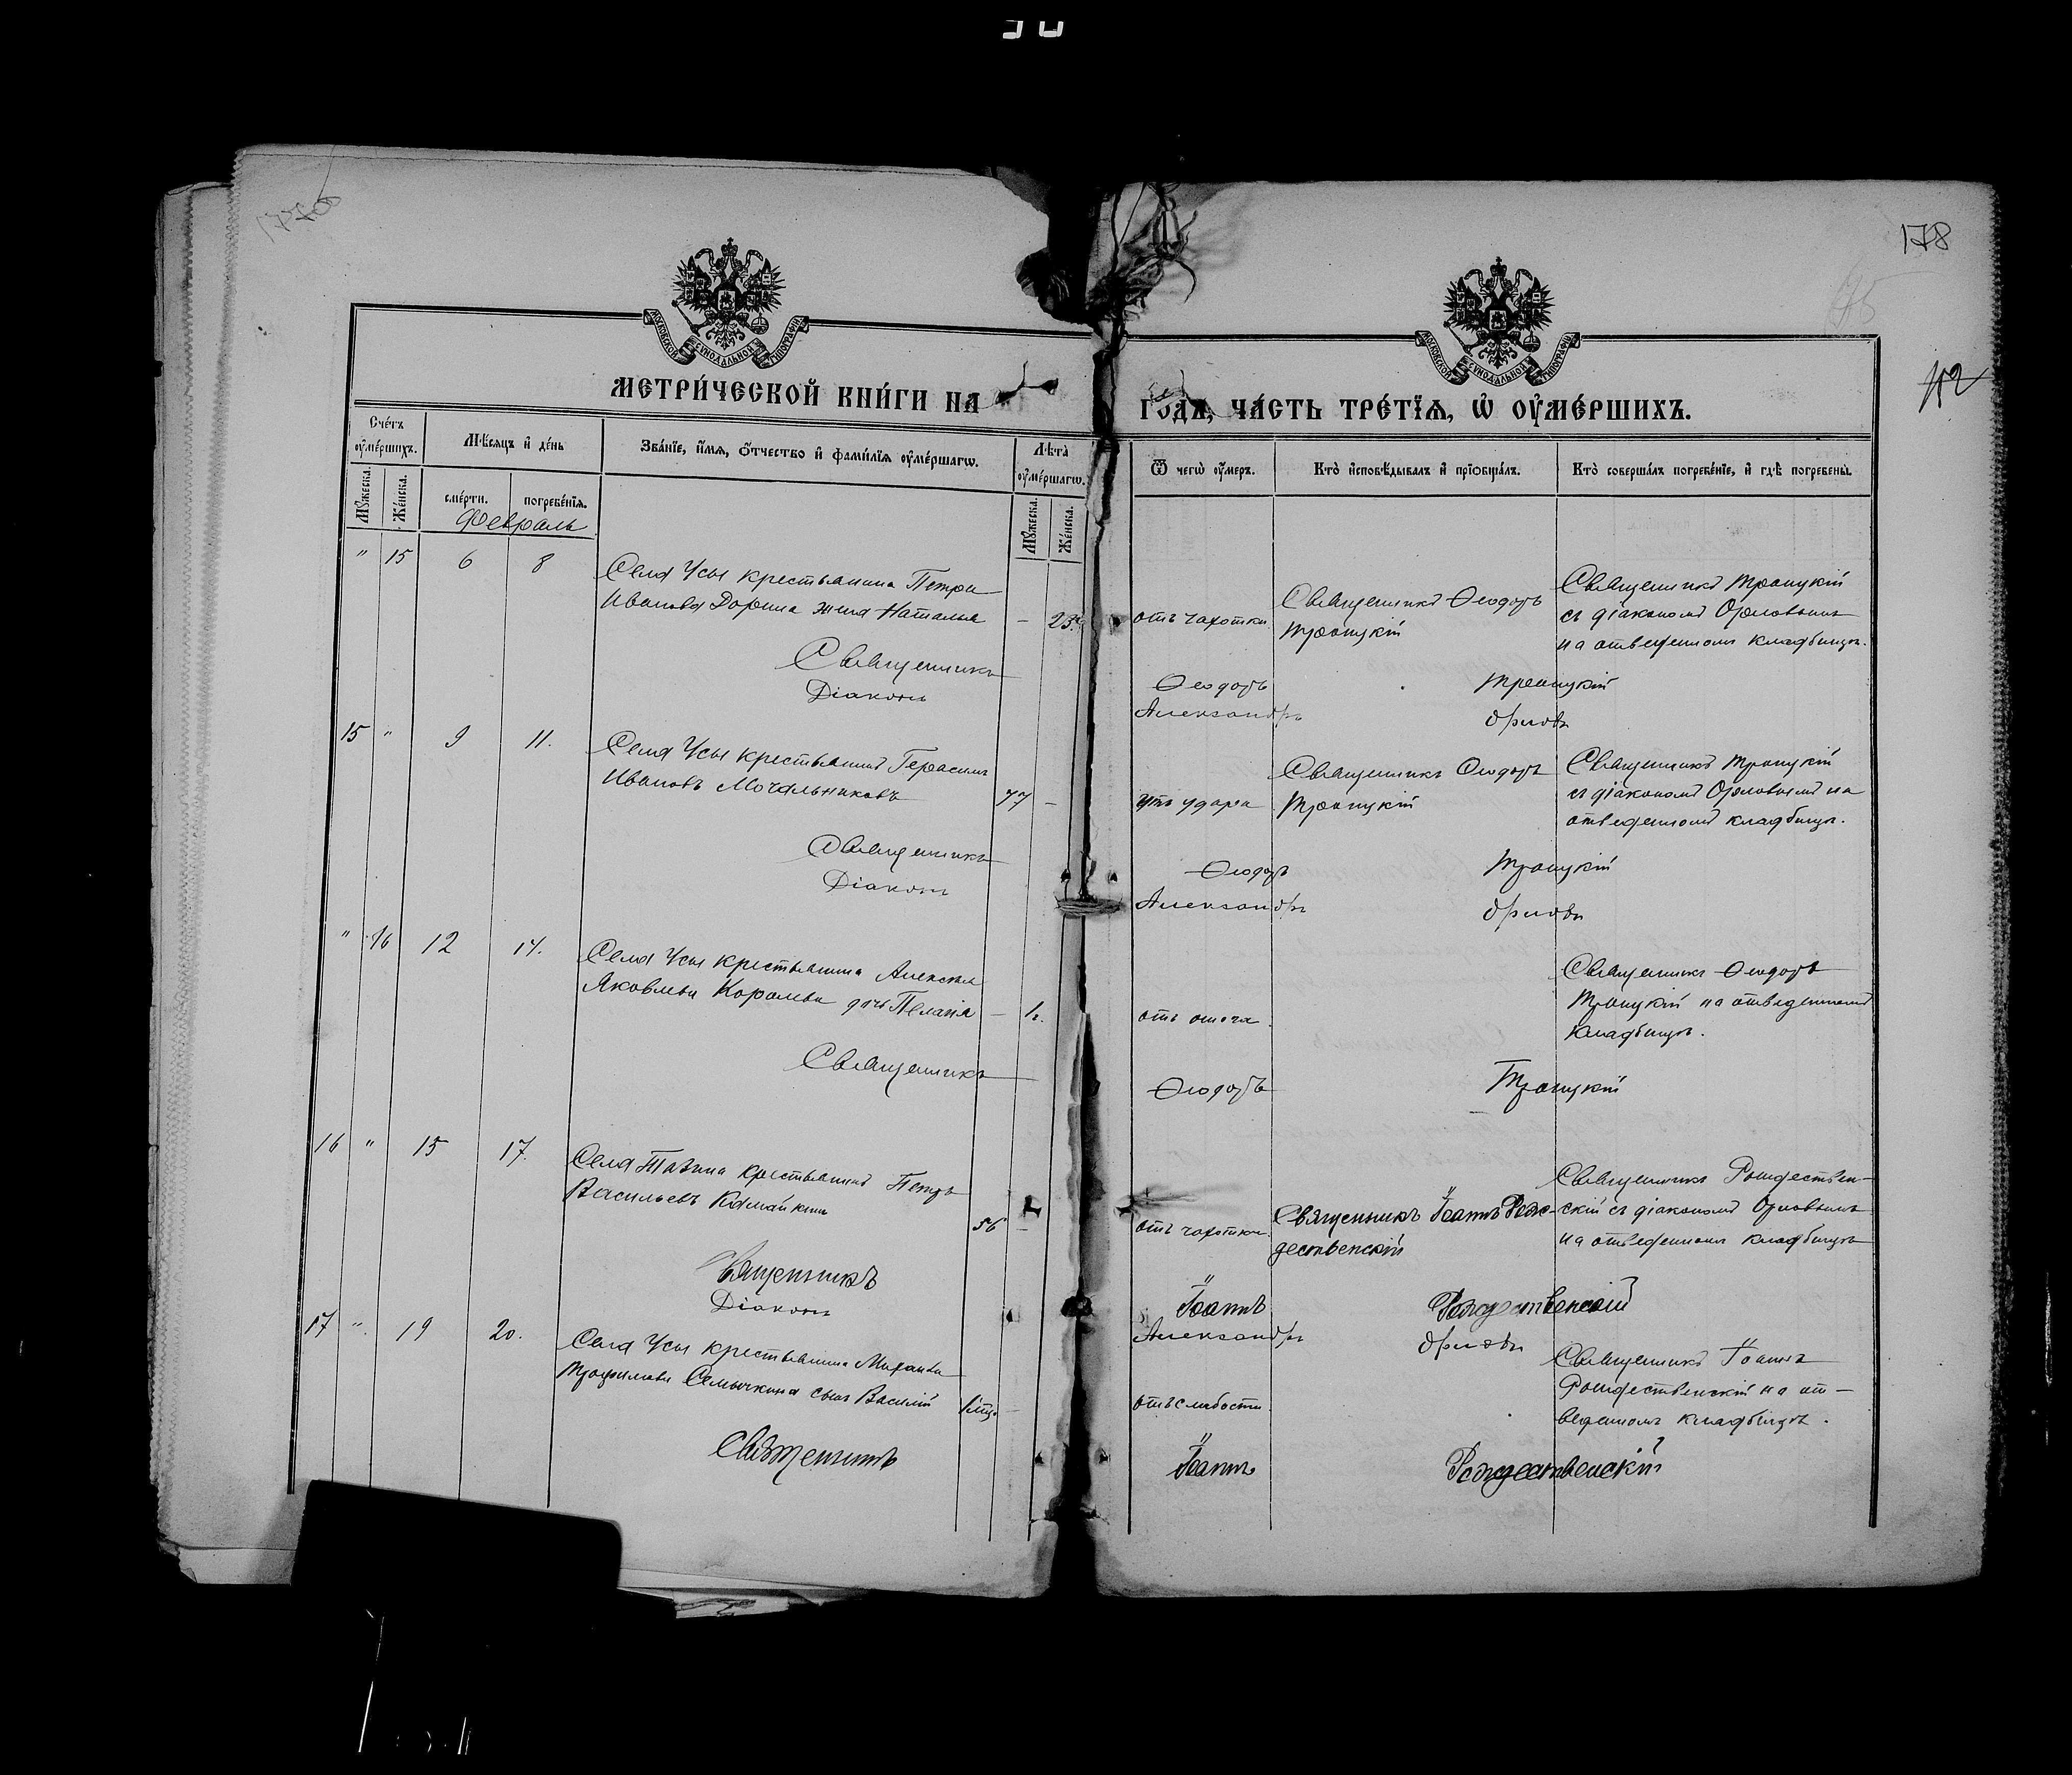 178
МОСКОВСКОЙ СѴНОДАЛЬНОЙ ТИПОГРАФІИ
МОСКОВСКОЙ СѴНОДАЛЬНОЙ ТИПОГРАФІИ
МЕТРИ́ЧЕСКОЙ КНИ́ГИ НА
ГО́ДЪ, ЧА́СТЬ ТРЕ́ТІѦ, Ѡ҆ ОУ҆МЕ́РШИХЪ.
Сче́тъ оу҆ме́ршихъ.
Мѣ́сѧцъ и҆ де́нь
Зва́нїе, и҆́мѧ, ѻ҆́тчество и҆ фами́лїѧ оу҆ме́ршагѡ.
Лѣта̀ оу҆ме́ршагѡ.
Ѿ чегѡ̀ оу҆́меръ.
Кто̀ и҆сповѣ́дывалъ и҆ прїѡбща́лъ.
Кто̀ соверша́лъ погребе́нїе, и҆ гдѣ̀ погребены̀.
Мꙋ́жеска.
Же́нска.
сме́рти.
погребе́нїѧ.
Мꙋ́жеска.
Же́нска.
Февраль
" 15 6 8
Села Усы крестьянина Петра
Иванова Дорина жена Наталья
- 23.
отъ чахотки.
Священникъ Ѳеодоръ
Троицкій
Священникъ Троицкій
съ діакономъ Орловымъ
на отведенномъ кладбищѣ.
Священникъ Ѳеодоръ Троицкій
Діаконъ Александръ Орловъ
15 " 9 11.
Села Усы крестьянинъ Герасимъ
Ивановъ Мочальниковъ
77 -
отъ удара
Священникъ Ѳеодоръ
Троицкій
Священникъ Троицкій
съ діакономъ Орловымъ на
отведенномъ кладбищѣ.
Священникъ Ѳеодоръ Троицкій
Діаконъ Александръ Орловъ
" 16 12 14.
Села Усы крестьянина Алексѣя
Яковлева Королева дочь Пелагія
-
отъ
Священникъ Ѳеодоръ
Троицкій на отведенномъ
кладбищѣ.
Священникъ Ѳеодоръ Троицкій
16 " 15 17.
Села крестьянинъ Петръ
Васильевъ
56 -
отъ чахотки.
Священникъ Іоаннъ Рож-
дественскій
Священникъ Рождествен-
скій съ діакономъ Орловымъ
на отведенномъ кладбищѣ
Священникъ Іоаннъ Рождественскій
Діаконъ Александръ Орловъ
17 " 19 20.
Села Усы крестьянина Михаила
Трофимова Семычкина сынъ Василій
-
отъ слабости.
Священникъ Іоаннъ
Рождественскій на от-
веденномъ кладбищѣ.
Священникъ Іоаннъ Рождественскій